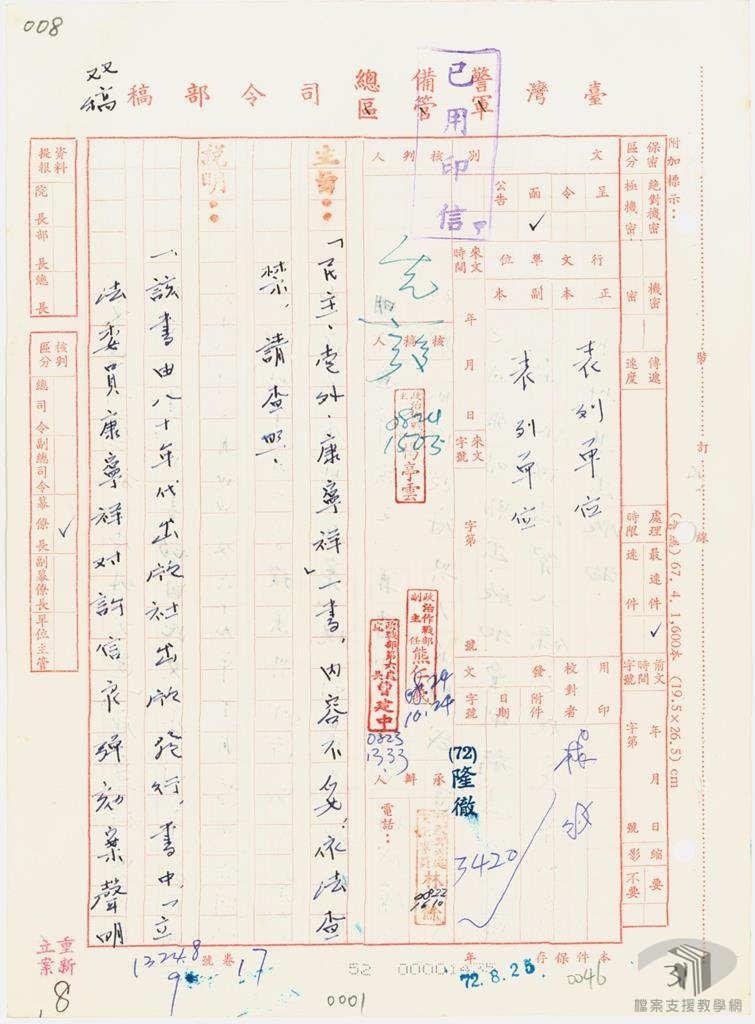 008
双稿
臺灣警備總司令部稿
軍管區
已用印信
附加標示：
保密區分
絕對機密
極機密
機密
密
傳遞速度
處理時限
最速件
✓
速件
前文時間字號
年 月 日
字第 號
縮影
要
不要
文別
呈
令
函
✓
公告
行文單位
正本
表列單位
副本
表列單位
來文時間
年 月 日
來文字號
字第 號
用印
校對者
發文
附件
日期
字號
(72)隆徹
3420
核判人
核稿人
0824
1505
政治作戰部副主任熊
10.24
政戰部第六處處長曾建中
0823
1333
承辦人
電話：
0822
1610
主旨：
「民主、党外、康寧祥」一書，內容不妥，依法查
禁，請查照。
說明：
一、該書由八十年代出版社出版發行，書中「立
法委員康寧祥對許信良彈劾案聲明
資料提報
院長
部長
總長
核判區分
總司令
副總司令
幕僚長
✓
副幕僚長
單位主管
裝 訂 線
67. 4. 1,600本 (19.5×26.5) cm
重新立案
8
13248
9
卷號
17
52 00001435
0001
本件保存 年
72.8.25.
0046
31
檔案支援教學網